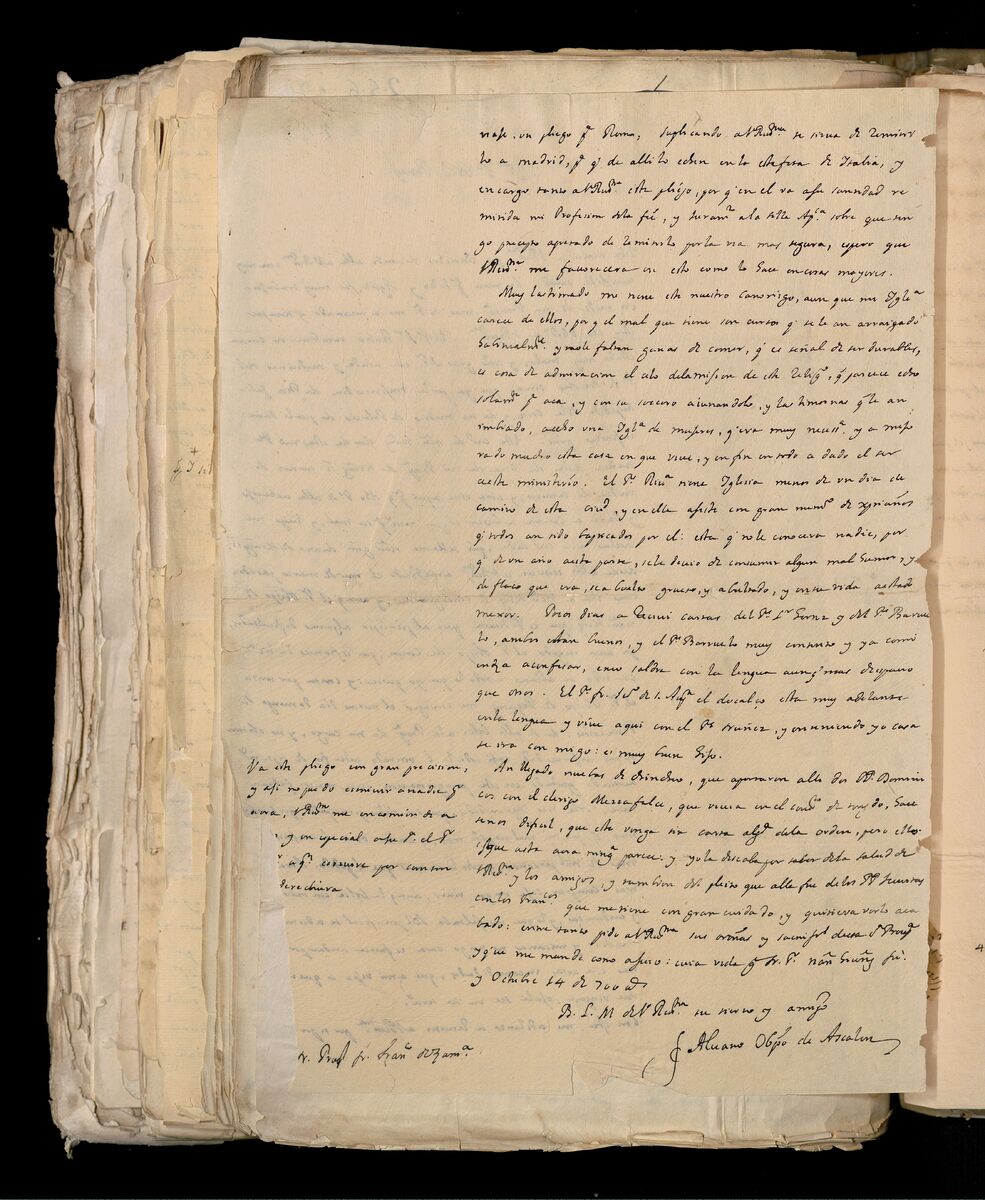 viaje, un pliego pa Roma, suplicando a V Rma se sirva de remitir
lo a madrid, pa q de alli lo echen en la estafeta de Italia, y
encargo tanto a V Rma este pliego, por q en el va a su santidad re
mitida mi Profesion dela feè, y Juramto a la sta Sede Appca sobre que ten
go precepto apretado de remitirlo por la via mas segura, espero que
V Rma me favorecera en esto como lo haze en cosas mayores.
Muy lastimado me tiene este nuestro Canonigo, aun que mi Iglesia
carece de ellos, por q el mal que tiene son cursos q se le an arraigado
habitualmte y no le faltan ganas de comer, q es señal de ser durables,
es cosa de admiracion el celo dela mission de este Religo, q parece echo
solamte pa aca, y con su socorro aiunandolo, y las limosnas q le an
imbiado, a echo una Igla de mujeres, q era muy necessa, y a mejo
rado mucho esta casa en que vive, y en fin en todo a dado el ser
a este ministerio. El Pe tiene Iglesia menos de un dia de
camino de esta ciud, y en ella asiste con gran numo de xpianos
q todos an sido baptizados por el: esta q no le conocera nadie, por
q de un año a esta parte, se le devio de consumir algun mal humor, y
de flaco que era, se a buelto grueso, y abultado, y en su vida a estado
mejor. Pocos dias a recivi cartas del Pe Lr y del Pe Barrue
lo, ambos estan buenos, y el Pe Barruelo muy contento y ya comi
enza a confesar, este saldra con la lengua aunq mas despacio
que otros. El Pe fr. de S. Agn el descalço esta muy adelante
en la lengua y vive aqui con el Pe Nuñez, y en teniendo yo casa
se ira con migo: es muy buen hijo.
An llegado nuebas de, que aportaron alli dos PP. Domini
cos con el clerigo Mezzafalce, que venia en el de, hace
senos dificil, que este venga sin carta algª dela orden, pero ello
es que asta aora ninga parece, y yo la deseaba por saber dela salud de
V Rma y los amigos, y tambien del pleito que alla fue de los PP Jesuitas
con los Francos que me tiene con gran cuidado, y quisiera verlo aca
bado: entre tanto pido a V Rma sus oraños y sacrifos de essa sta Provª
y que me mande como a suyo: cuia vida gde Dr. Ps.
y Octubre 14 de 700 as
B. L. M. de V. Rma su siervo y amigo
fr Alvaro Obpo de Ascalon
Va este pliego con gran precision,
y asi no puedo escrivir a nadie pr
aora, V Rma me encomiende a
y en especial a su Pe. el Pe
a q escrivire por
derechura
r. Provl fr. Fran de Zama